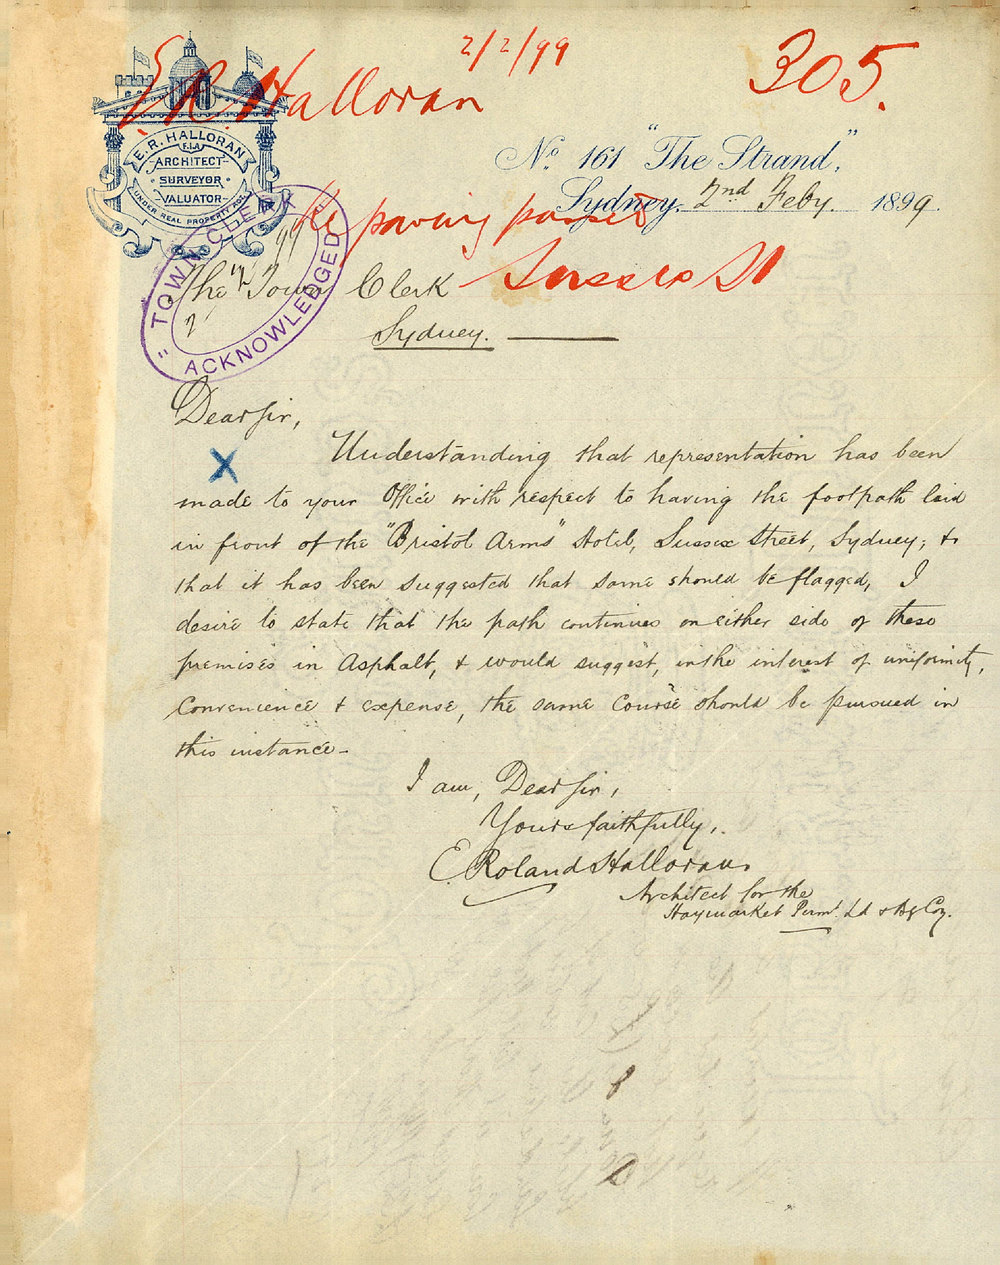 2/2/99
305.
E. R. Halloran
E. R. HALLORAN
F.I.A
ARCHITECT
SURVEYOR
VALUATOR
UNDER REAL PROPERTY ACT
No. 161 "The Strand",
Sydney, 2nd Feby. 1899.
Re paving
Sussex St
TOWN CLERK
ACKNOWLEDGED
The Town Clerk
Sydney.
Dear Sir,
X
Understanding that representation has been
made to your Office with respect to having the footpath laid
in front of the "Bristol Arms" Hotel, Sussex Street, Sydney; &
that it has been suggested that same should be flagged, I
desire to state that the path continues on either side of these
premises in Asphalt, & would suggest, in the interest of uniformity,
convenience & expense, the same course should be pursued in
this instance -
I am, Dear Sir,
Yours faithfully,
E. Roland Halloran
Architect for the
Haymarket Permt. Ld & Bg Coy.